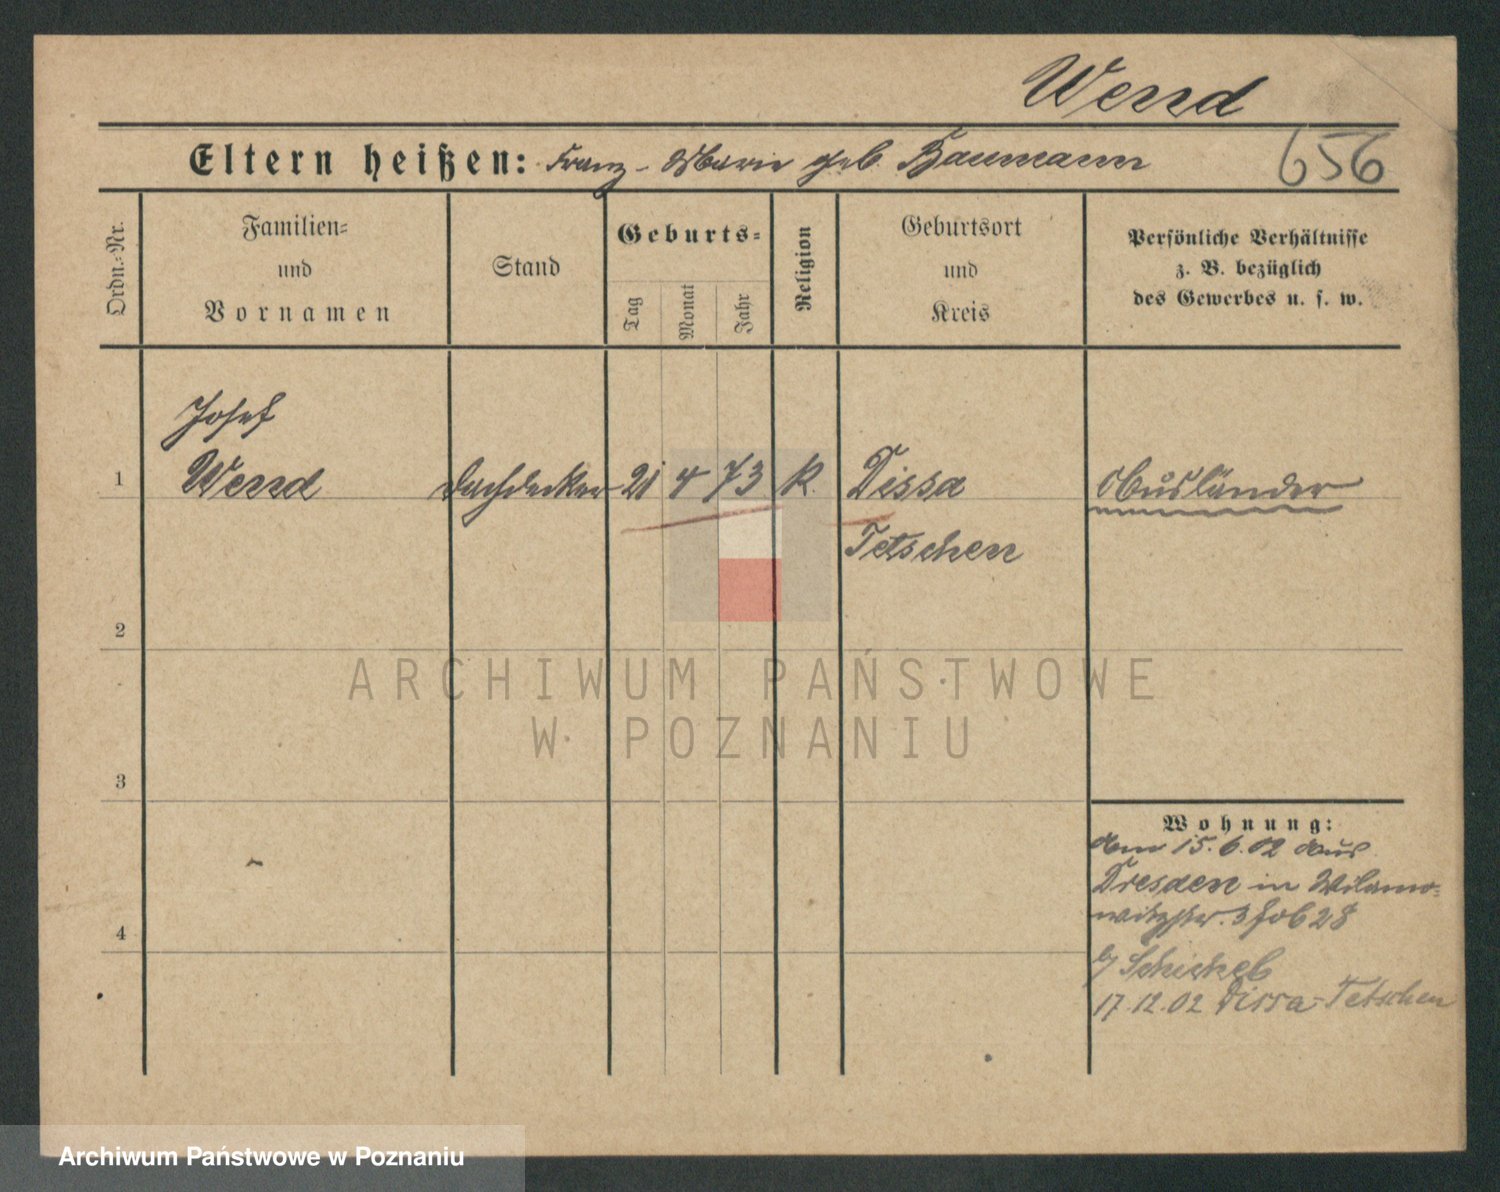 Wend
Eltern heißen: Franz - Marie geb. Baumann
656
Ordn.=Nr.
Familien=
und
Vornamen
Stand
Geburts=
Tag
Monat
Jahr
Religion
Geburtsort
und
Kreis
Persönliche Verhältnisse
z. B. bezüglich
des Gewerbes u. s. w.
Josef
1 Wend Dachdecker 21 4 73 K. Dissa Ausländer
Tetschen
2
ARCHIWUM PAŃSTWOWE
W POZNANIU
3
Wohnung:
15.6.02 aus
Dresden in Wilamo=
witzstr. 3
4
17.12.02 Dissa-Tetschen
Archiwum Państwowe w Poznaniu